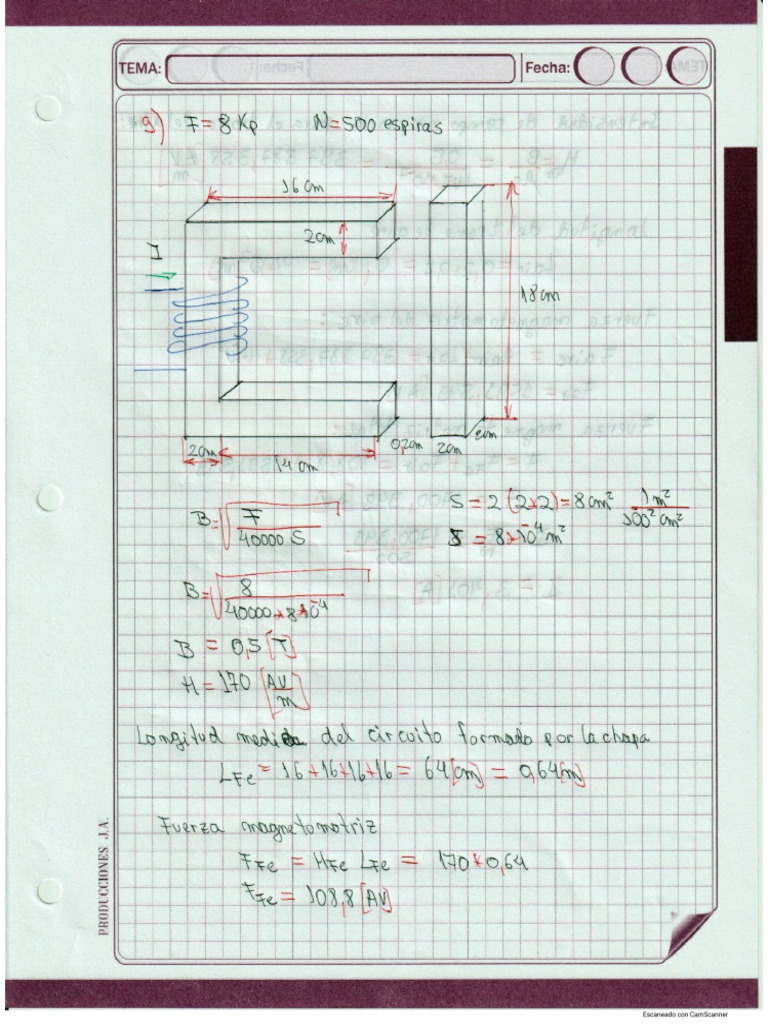 TEMA: Fecha:
9) F = 8 Kp N = 500 espiras
16 cm
2cm
I
18 cm
2cm
14 cm
0,2cm
2cm
2cm
B = √(F / 40000 S)
S = 2 (2*2) = 8 cm² 1 m² / 100² cm²
S = 8*10⁻⁴ m²
B = √(8 / 40000*8*10⁻⁴)
B = 0,5 [T]
H = 170 [AV/m]
Longitud media del circuito formado por la chapa
LFe = 16+16+16+16 = 64 [cm] = 0,64 [m]
Fuerza magnetomotriz
FFe = HFe LFe = 170*0,64
FFe = 108,8 [AV]
PRODUCCIONES J.A.
Escaneado con CamScanner